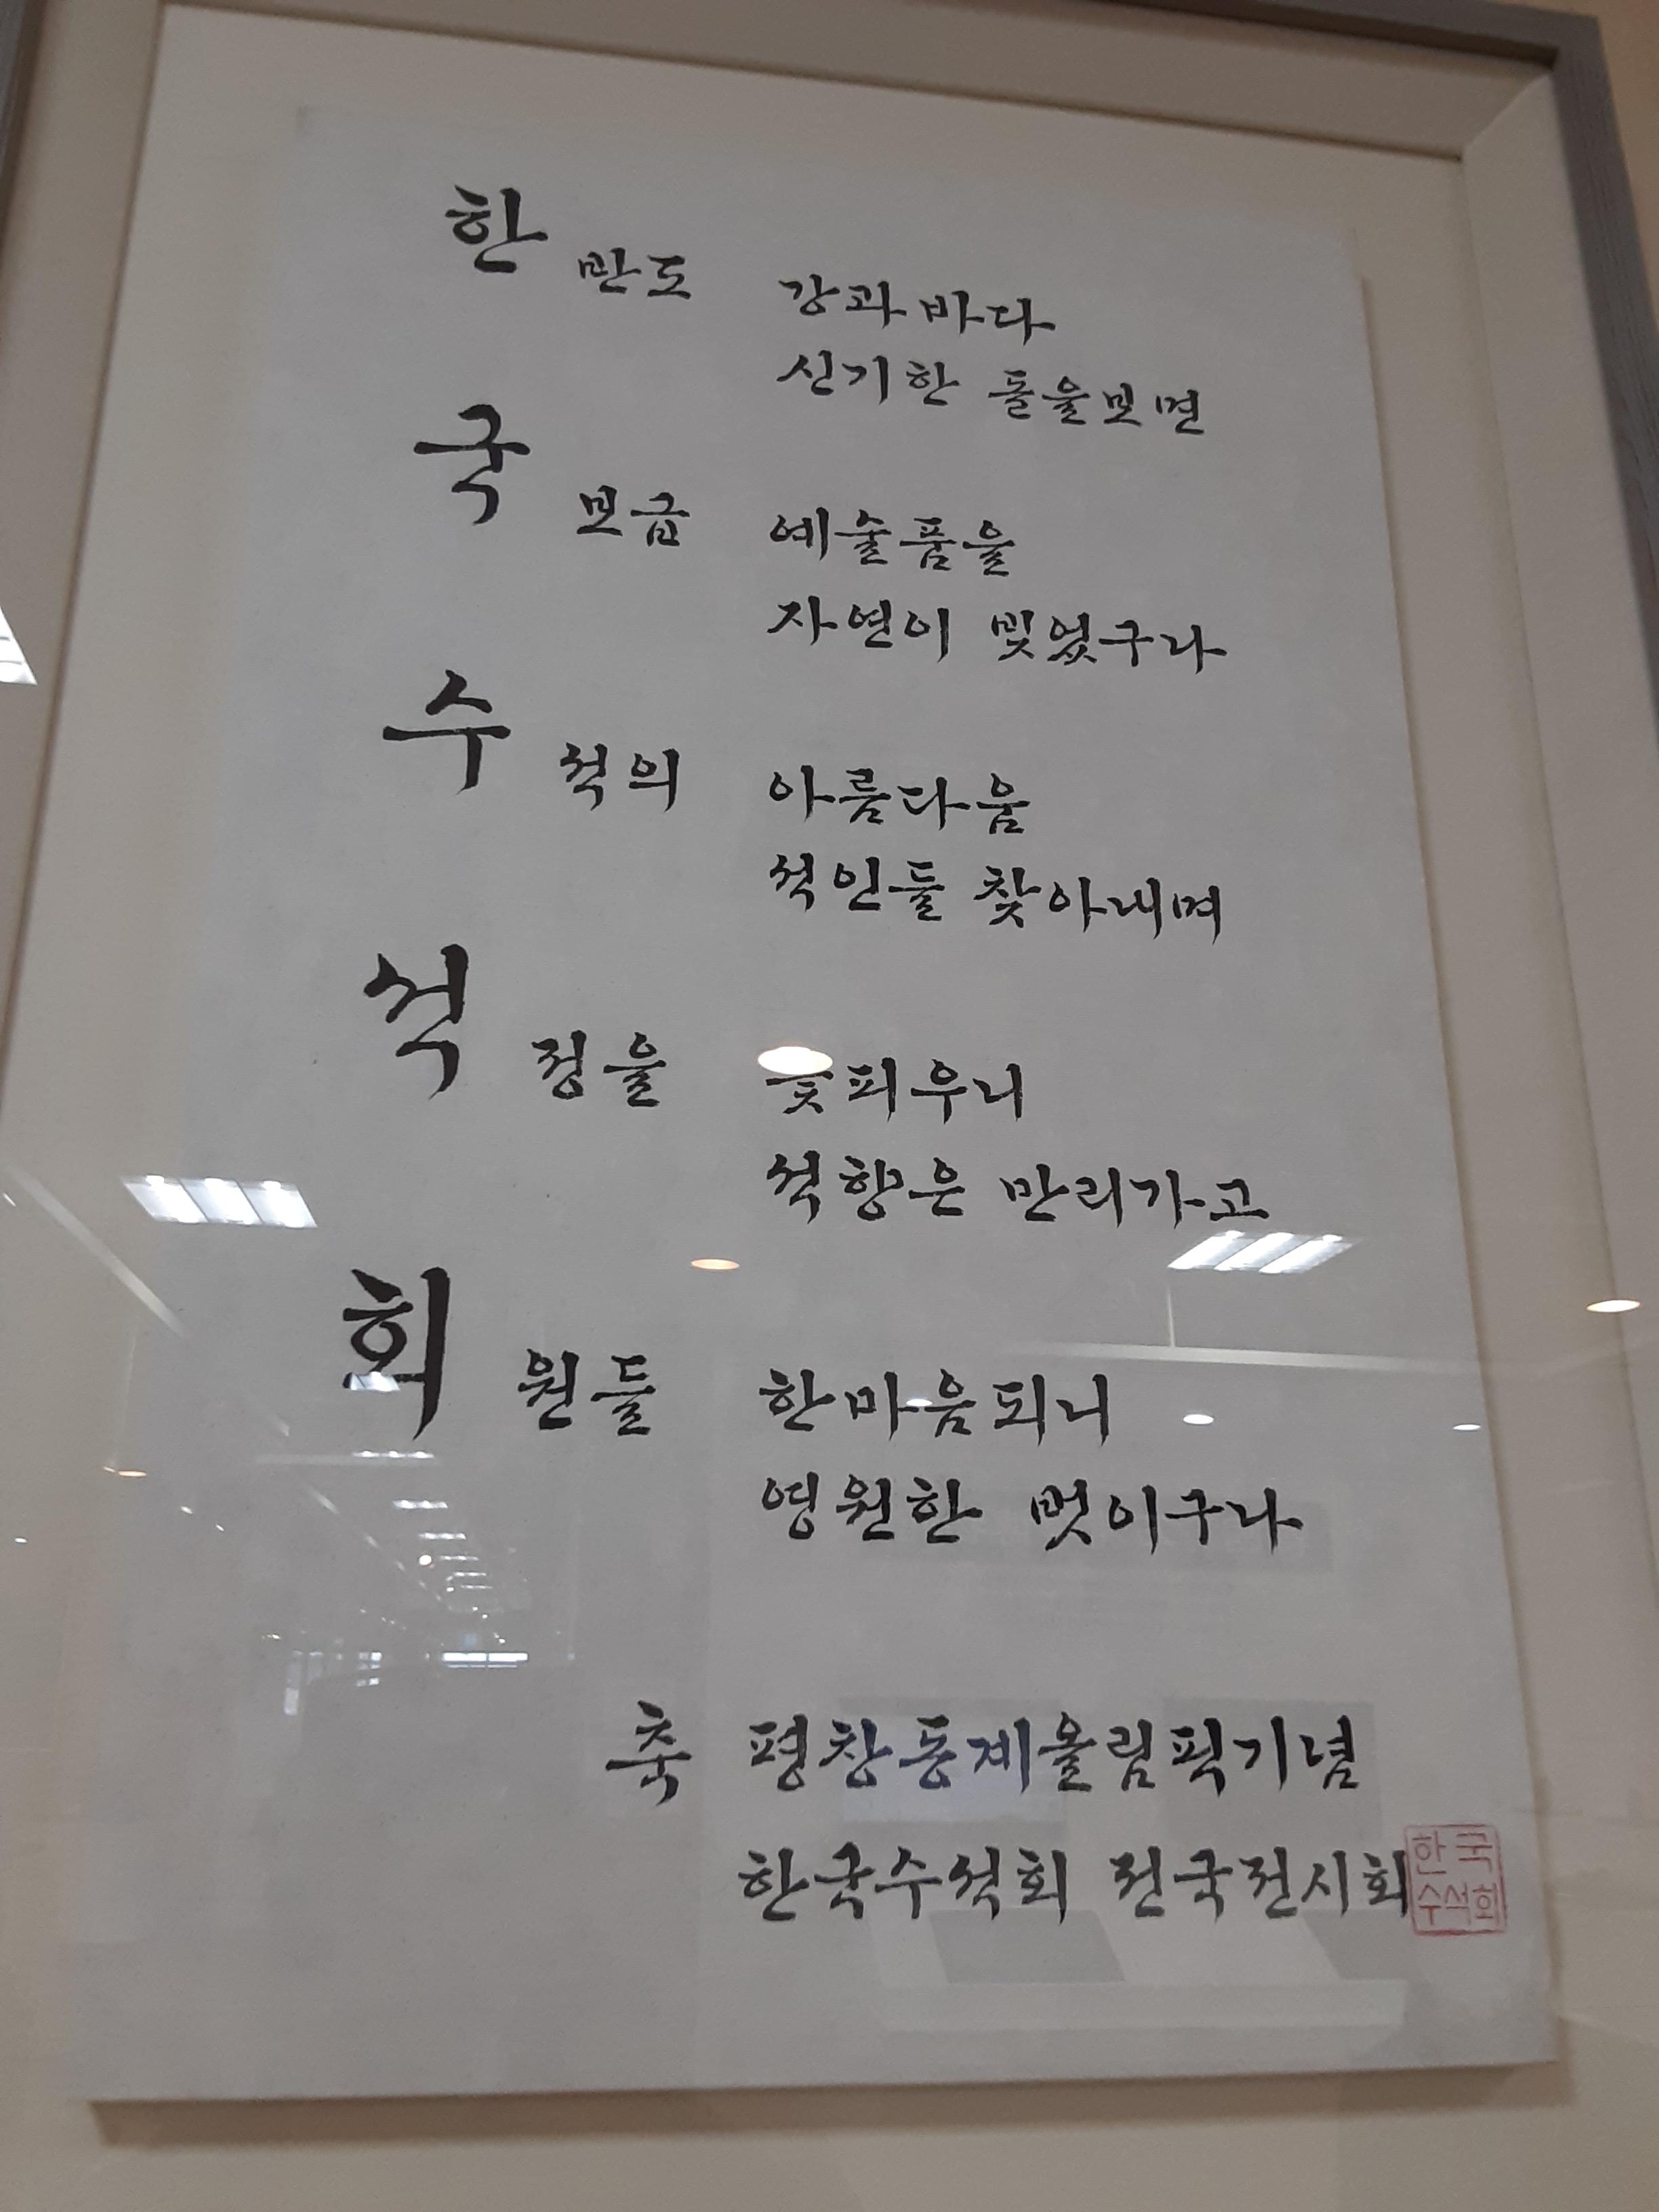 한반도 강과바다
신기한 돌을보면
국보급 예술품을
자연이 빚었구나
수석의 아름다움
석인들 찾아내며
석정을 꽃피우니
석향은 만리가고
회원들 한마음되니
영원한 멋이구나
축 평창동계올림픽기념
한국수석회 전국전시회
한국
수석회